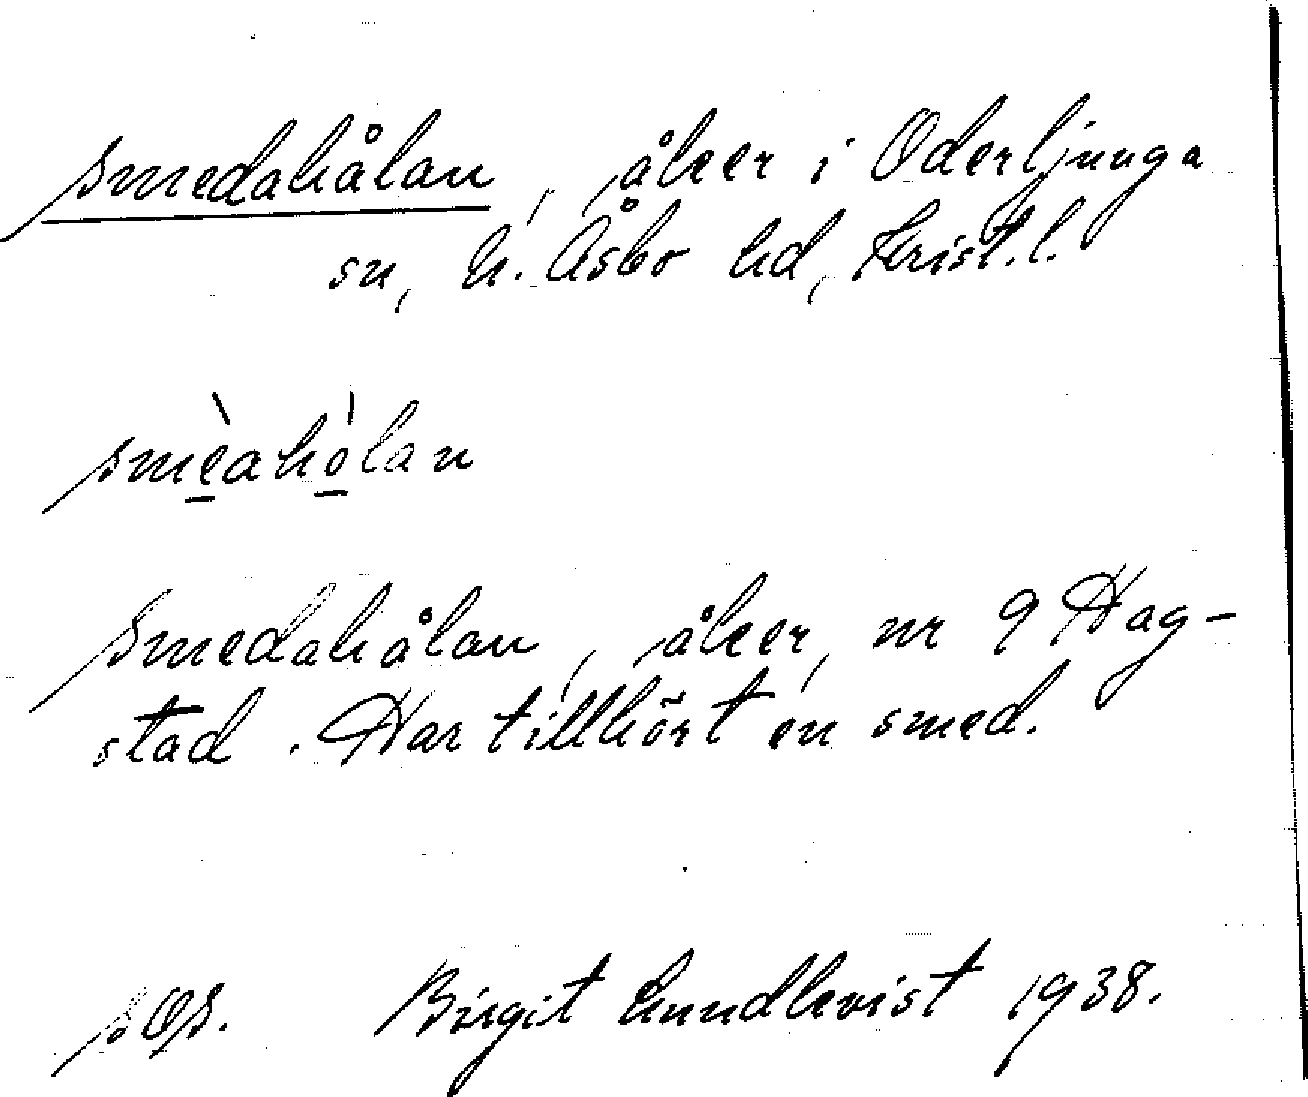 smedahålan, åker i Oderljunga
sn, N. Åsbo hd, Krist. l.
smèahòlan
Smedahålan, åker, nr 9 Hag-
stad. Har tillhört en smed.
Birgit Lundkvist 1938.